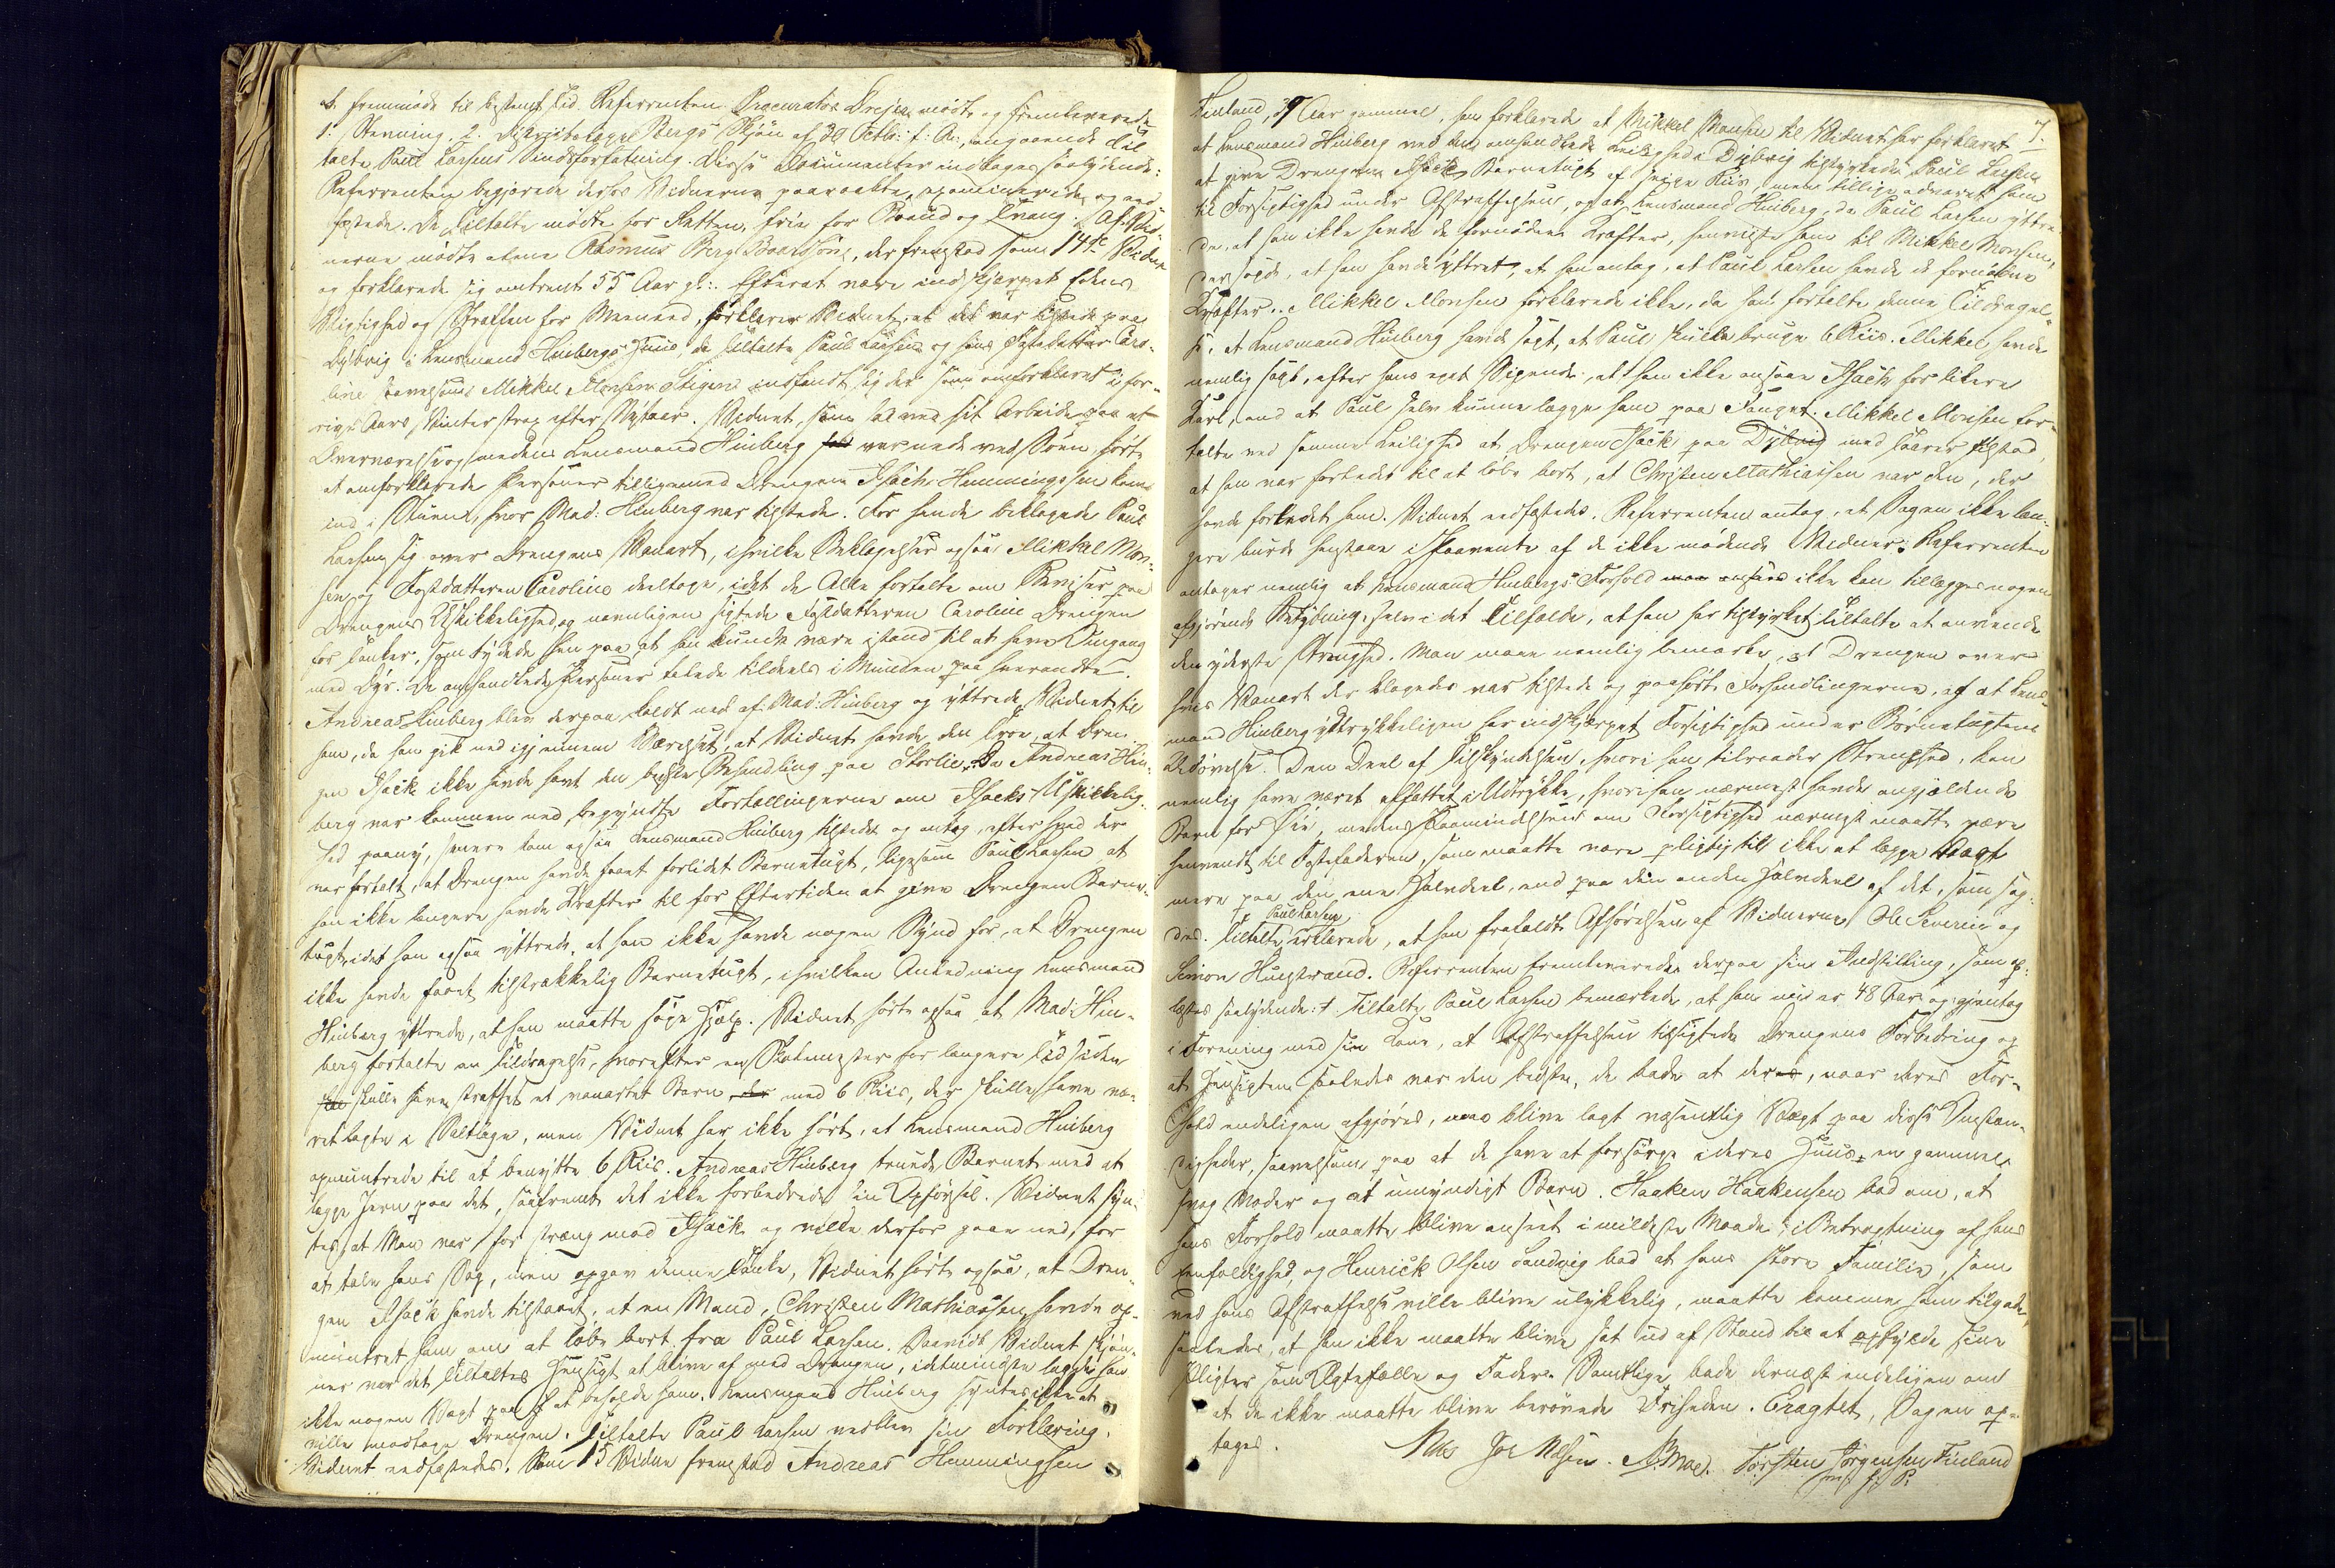 d. fremmøde til bestemt Tid. Referenten Procurator Dreyer mødte og fremleverede
1. Stevning. 2. Districtslæge Bergs Skjøn af 30 Octbr. f: A:, angaaende Til-
talte Paul Larsens Sindsforfatning. Disse Documenter indtages saalydende:
Referenten begjerede derhos Vidnerne paaraabte, examinerede og eed-
fæstede. De Tiltalte mødte for Retten, frie for Baand og Tvang. Af Vid-
nerne mødte alene Rasmus Berg Baardsen, der fremstod som 14de Vidne
og forklarede sig omtrent 55 Aar gl:. Efterat være indskjærpet Edens
Vigtighed og Straffen for Meeneed, forklarer Vidnet, at det var tilstede paa
Dybvig i Lensmand Hinbergs Huus, da Tiltalte Paul Larsen og hans Fostdatter Caro-
line saavelsom Mikkel Monsen Stigen indfandt sig der som omforklaret i for-
rige Aars Vinter strax efter Nytaar. Vidnet, som sad ved sit Arbeide paa et
Overværelse og medens Lensmand Hinberg var nede ved Søen, hørte
at omforklarede Personer tilligemed Drengen Isach Hemmingsen kom
ind i Stuen, hvor Mad: Hinberg var tilstede. For hende beklagede Paul
Larsen sig over Drengens Vanart, i hvilke Beklagelser ogsaa Mikkel Mon-
sen og Fostdatteren Caroline deeltoge, idet de Alle fortalte om Beviser paa
Drengens Uskikkelighed, og navnligen sigtede Fostdatteren Caroline Drengen
for Tanker, som tydede hen paa, at han kunde være istand til at have Omgang
med Dyr. De omhandlede Personer talede tildeels i Munden paa hverandre.
Andreas Hinberg blev derpaa kaldt ned af Mad: Hinberg og yttrede Vidnet til
ham, da han gik ned igjennem Værelset, at Vidnet havde den Troe, at Dren-
gen Isack ikke havde havt den bedste Behandling paa Storlie. Da Andreas Hin-
berg var kommen ned, begyndte Fortællingerne om Isacks Uskikkelig-
hed paany, senere kom ogsaa Lensmand Hinberg tilstede og antog, efter hvad der
var fortalt, at Drengen havde faaet forlidet Barnetugt, ligesom Paul Larsen at
han ikke længere havde Kræfter til for Eftertiden at give Drengen Barne-
tugt, idet han ogsaa yttrede, at han ikke havde nogen Synd for, at Drengen
ikke havde faaet tilstrækkelig Barnetugt, i hvilken Anledning Lensmand
Hinberg yttrede, at han maatte søge Hjælp. Vidnet hørte ogsaa at Mad: Hin-
berg fortalte en Tildragelse, hvorefter en Skolemester for længere Tid siden
skulle have straffet et vanartet Barn med 6 Riis, der skulle have væ-
ret lagte i Saltlage, men Vidnet har ikke hørt, at Lensmand Hinberg
opmuntrede til at benytte 6 Riis. Andreas Hinberg truede Barnet med at
lægge Jern paa det, saafremt det ikke forbedrede sin Opførsel. Vidnet syn-
tes, at Man var for stræng mod Isack og vilde derfor gaae ned, for
at tale hans Sag, men opgav denne Tanke. Vidnet hørte ogsaa, at Dren-
gen Isack havde tilstaaet, at en Mand, Christen Mathiassen, havde op-
muntret ham om at løbe bort fra Paul Larsen. Saavidt Vidnet skjøn-
ner var det Tiltaltes Hensigt at blive af med Drengen, idetmindste lagde han
ikke nogen Vægt paa at beholde ham. Lensmand Hinberg syntes ikke at
ville modtage Drengen. Tiltalte Paul Larsen vedblev sin Forklaring.
Vidnet eedfæstedes. Som 15 Vidne fremstod Andreas Hemmingsen
7.
Finland, 37 Aar gammel, han forklarede at Mikkel Monsen til Vidnet har forklaret
at Lensmand Hinberg ved den omhandlede Leilighed i Dybvig tilskyndede Paul Larsen
at give Drengen Isack Barnetugt af Riis, men tillige advaret ham
til Forsigtighed under Afstraffelsen, og at Lensmand Hinberg, da Paul Larsen yttre-
de, at han ikke havde de fornødne Kræfter, henviste ham til Mikkel Monsen,
der sagde, at han havde yttret, at han antog, at Paul Larsen havde de fornødne
Kræfter. Mikkel Monsen forklarede ikke, da han fortalte denne Tildragel-
se, at Lensmand Hinberg havde sagt, at Paul skulle bruge 6 Riis. Mikkel havde
nemlig sagt, efter hans eget Sigende, at han ikke ansaae Isach for likere
Karl, end at Paul selv kunne lægge ham paa Fanget. Mikkel Monsen for-
talte ved samme Leilighed at Drengen Isack paa Dybvig med Taarer tilstod,
at han var forledet til at løbe bort, at Christen Mathiassen var den, der
havde forledet ham. Vidnet eedfæstedes. Referenten antog, at Sagen ikke læn-
gere burde henstaae i Paavente af de ikke mødende Vidner. Referenten
antager nemlig at Lensmand Hinbergs Forhold ikke kan tillægges nogen
afgjørende Betydning, selv i det Tilfælde, at han har tilskyndet Tiltalte at anvende
den yderste Strenghed. Man maae nemlig bemærke, at Drengen over
hvis Vanart der klagedes var tilstede og paahørte Forhandlingerne, og at Lens-
mand Hinberg udtrykkeligen har indskjærpet Forsigtighed under Børnetugtens
Udøvelse. Den Deel af Tilskyndelsen, hvori han tilraader Strenghed, kan
nemlig have været affattet i Udtrykke, hvori han nærmest havde angjældende
Barn for Øie, medens Paamindelsen om Forsigtighed nærmest maatte være
henvendt til Fosterfaderen, som maatte være pligtig til ikke at lægge Vægt
mere paa den ene Halvdeel, end paa den anden Halvdeel af det, som sag-
des. Tiltalte Paul Larsen erklærede, at han frafaldt Afhørelsen af Vidnerne Ole Severin og
Simon Huustrand. Referenten fremleverede derpaa sin Indstilling, som op-
læstes saalydende: † Tiltalte Paul Larsen bemærkede, at han nu er 48 Aar og gjentog
i Forening med sin Kone, at Afstraffelsen tilsigtede Drengens Forbedring og
at Hensigten saaledes var den bedste, de bade at der, naar deres For-
hold endeligen afgjøres, maa blive lagt væsentlig Vægt paa disse Omstæn-
digheder, saavelsom paa at de have at forsørge i deres Huus en gammel
svag Moder og et umyndigt Barn. Haaken Haakensen bad om, at
hans Forhold maatte blive anseet i mildeste Maade i Betragtning af hans
Eenfoldighed, og Henrick Olsen Sandvig bad at hans store Familie, som
ved hans Afstraffelse ville blive ulykkelig, maatte komme ham tilgode,
saaledes, at han ikke maatte blive sat ud af Stand til at opfylde sine
Pligter som Ægtefælle og Fader. Samtlige bade dernæst endeligen om
at de ikke maatte blive berøvede Friheden. Eragtet, Sagen op-
tages.
Joe Nilsen. Torsten Jørgensen Finland